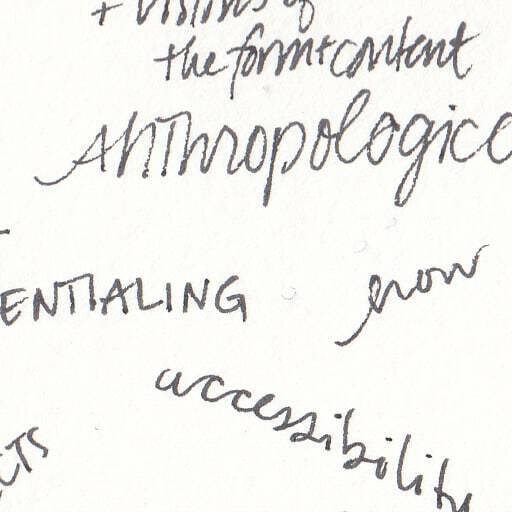 + visions of
the form + content
Anthropologica
ENTIALING
grow
accessibility
CTS